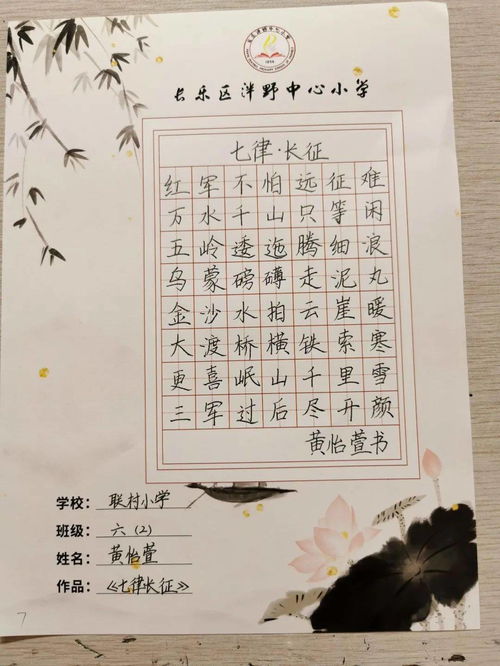 长乐区泮野中心小学
七律·长征
红军不怕远征难
万水千山只等闲
五岭逶迤腾细浪
乌蒙磅礴走泥丸
金沙水拍云崖暖
大渡桥横铁索寒
更喜岷山千里雪
三军过后尽开颜
黄怡萱书
学校：联村小学
班级：六（2）
姓名：黄怡萱
作品：《七律长征》
7